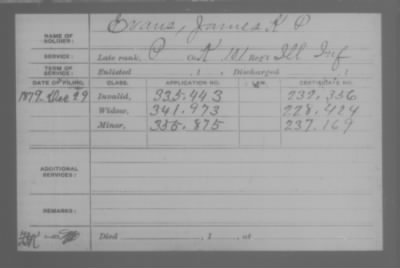 NAME OF SOLDIER: Evans, James K P
SERVICE: Late rank, P Co. K, 101 Reg't Ill Inf
TERM OF SERVICE: Enlisted , 1 , Discharged , 1
DATE OF FILING. CLASS. APPLICATION NO. LAW. CERTIFICATE NO.
1879. Dec 29 Invalid, 335.443 232.356
Widow, 341.973 228.424
Minor, 355.875 237.169
ADDITIONAL SERVICES:
REMARKS:
Died , 1 , at